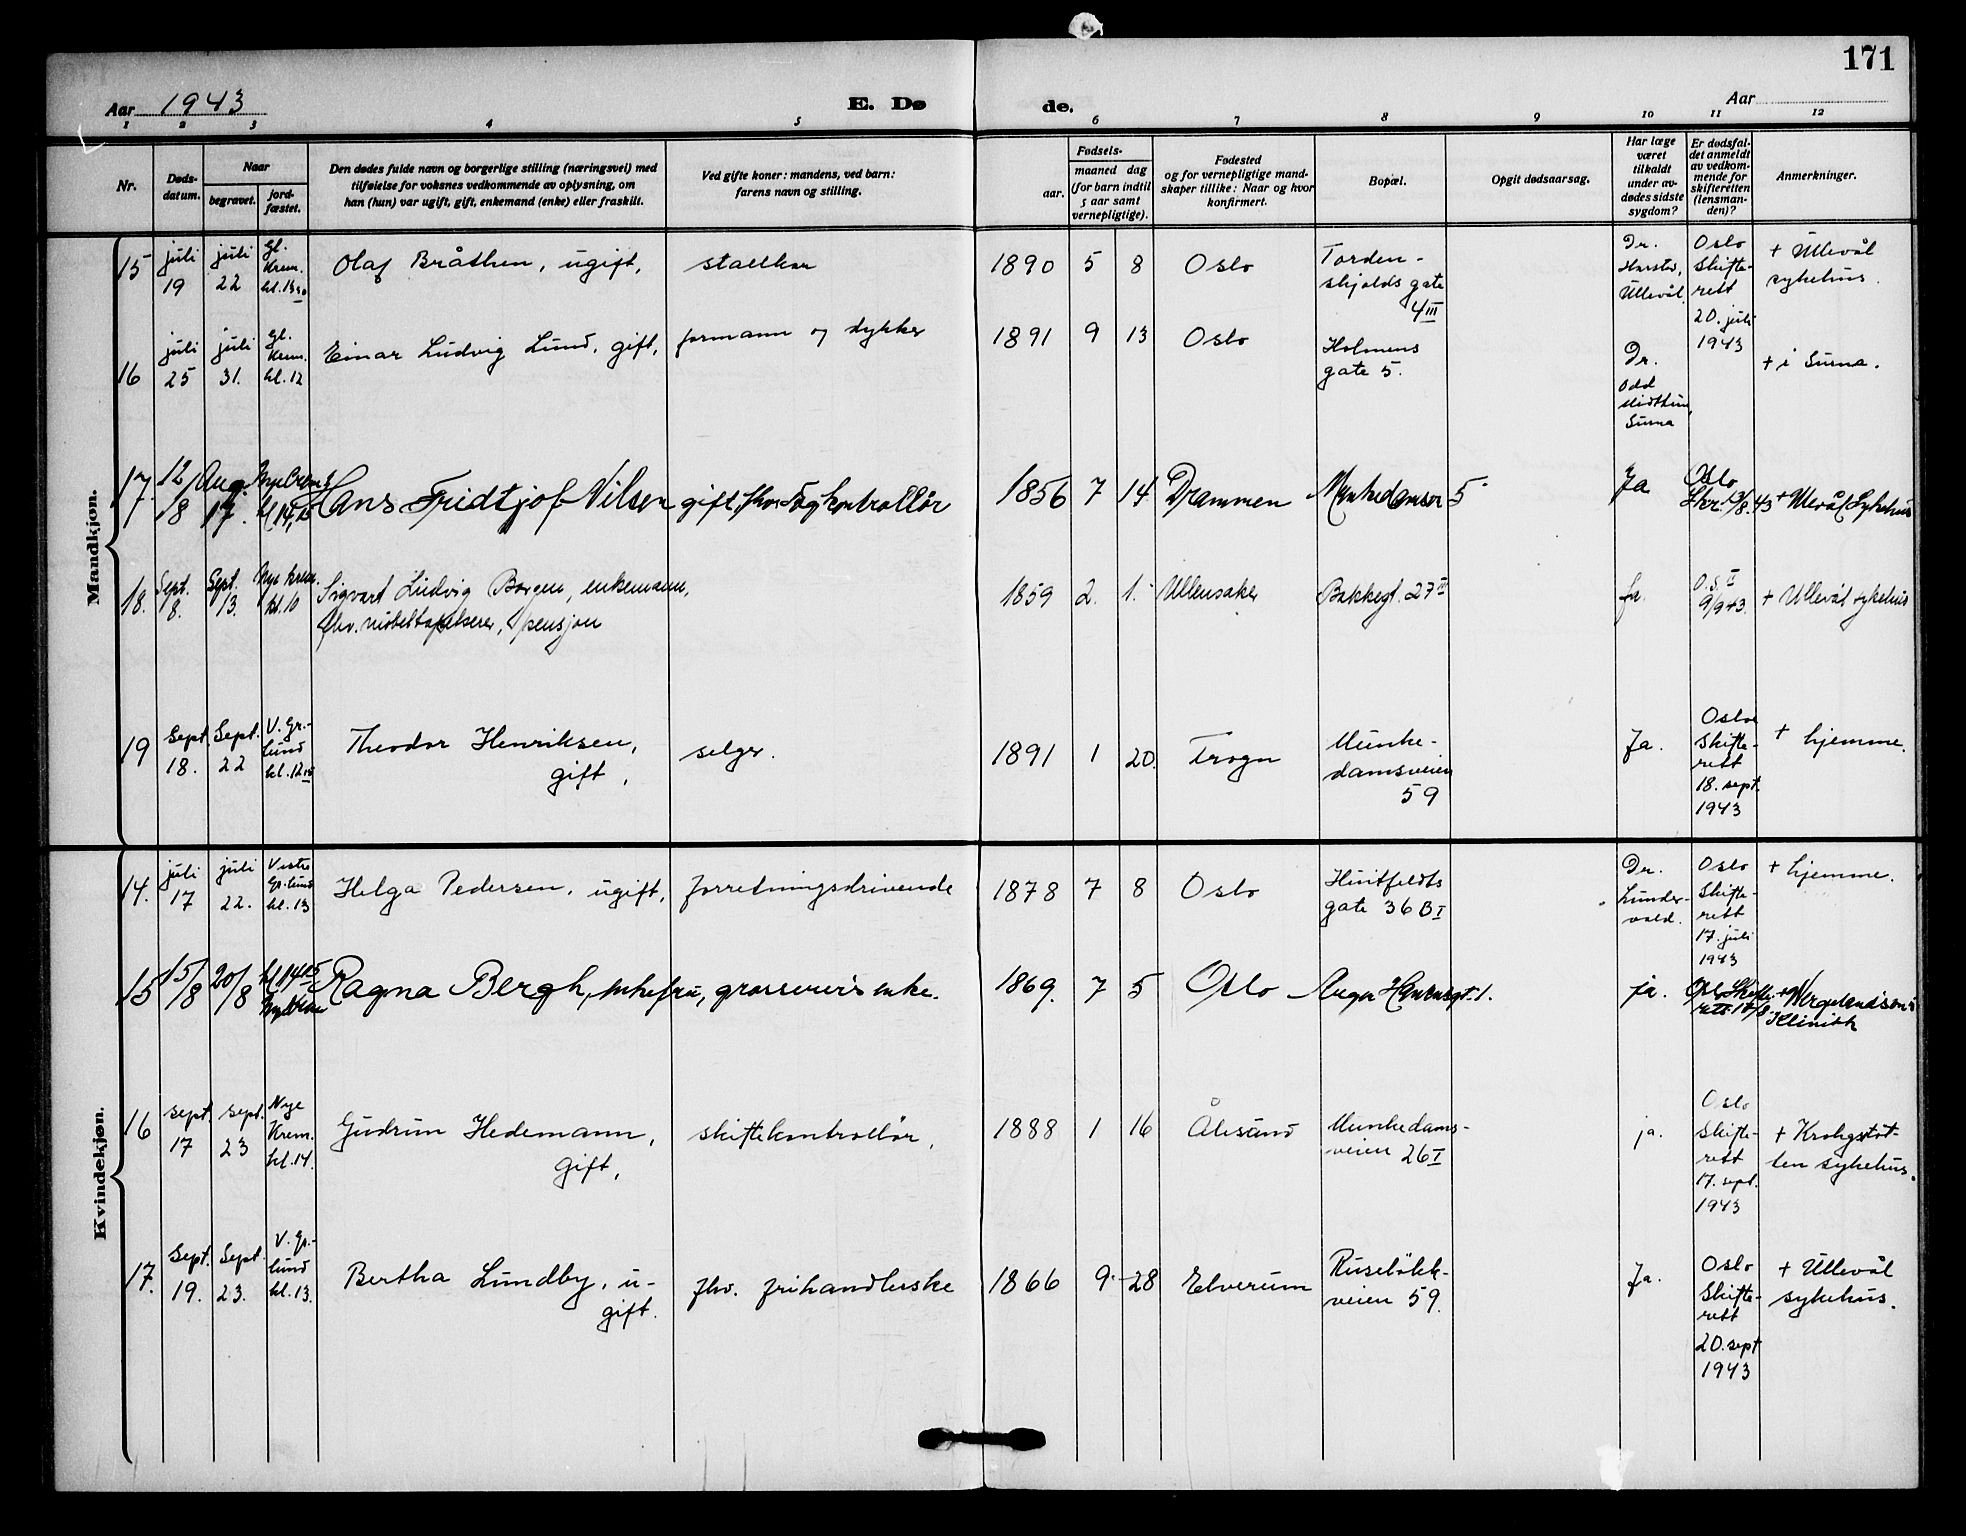 171
Aar 1943
E. Dø
de.
Aar
1 2 3 4 5 6 7 8 9 10 11 12
Nr.
Døds-
datum.
Naar
begravet.
jord-
fæstet.
Den dødes fulde navn og borgerlige stilling (næringsvei) med
tilføielse for voksnes vedkommende av oplysning, om
han (hun) var ugift, gift, enkemand (enke) eller fraskilt.
Ved gifte koner: mandens, ved barn:
farens navn og stilling.
Fødsels-
aar.
maaned dag
(for barn indtil
5 aar samt
vernepligtige).
Fødested
og for vernepligtige mand-
skaper tillike: Naar og hvor
konfirmert.
Bopæl.
Opgit dødsaarsag.
Har læge
været
tilkaldt
under av-
dødes sidste
sygdom?
Er dødsfal-
det anmeldt
av vedkom-
mende for
skifteretten
(lensman-
den)?
Anmerkninger.
Mandkjøn.
15
juli
19
juli
22
Gl.
Krem.
kl. 13
Olaf Bråthen, ugift,
stallkar
1890 5 8
Oslo
Torden-
skjolds gate
4 III
Dr.
Ullevål
Oslo
Skifte-
rett
20. juli
1943
+ Ullevål
sykehus.
16
juli
25
juli
31.
Gl.
Krem.
kl. 12
Einar Ludvig Lund, gift,
formann og dykker
1891 9 13
Oslo
Holmens
gate 5.
Dr.
Odd
Midthun,
Surna
+ i Surna.
17.
12/8
Aug.
17.
Hans Fridtjof Nilsen
gift, fhv. Tog kontrollør
1856 7 14
Drammen
Munkedamsv 5
Ja
Oslo
Skr. 13/8.43
+ Ulevål Sykehus
18.
Sept.
8.
Sept.
13.
Nye krem.
kl. 10
Sigvart Ludvig Borgen, enkemann,
fhv. møbeltapetserer, pensjon
1859 2. 1.
Ullensaker
Bakkegt. 27 III
Ja.
O.S. II
9/9 43.
+ Ullevål sykehus
19
Sept.
18.
Sept.
22
V. Gr.-
lund
kl. 12 15
Theodor Henriksen,
gift,
selger.
1891 1 20.
Trøgn
Munke-
damsveien
59
Ja.
Oslo
Skifte-
rett
18. sept.
1943
+ hjemme.
Kvindekjøn.
14.
juli
17
juli
22.
Vestre
Gr.lund
kl. 13
Helga Pedersen, ugift,
forretningsdrivende
1878 7 8
Oslo
Huitfeldts
gate 36 B I
Dr.
Lunder-
vold.
Oslo
Skifte-
rett
17. juli
1943
+ hjemme.
15
15/8
20/8
kl. 14 15
Nye Krem
Ragna Bergh, enkefru, grosserers enke.
1869. 7 5
Oslo
Ja.
Oslo Skifte-
rett 17/8.
+ Wergelandsv.s
Klinikk
16
sept.
17
sept.
23
Nye
Krem.
kl. 14.
Gudrun Hedemann,
gift,
skiftekontrollør,
1888 1 16
Ålesund
Munkedams-
veien 26 I
ja.
Oslo
Skifte-
rett
17. sept.
1943
+ Krohgstøt-
ten sykehus.
17.
Sept.
19.
Sept.
23.
V. Gr.-
lund
kl. 13.
Bertha Lundby, u-
gift.
fhv. frihandlerske
1866 9. 28
Elverum
Ruseløkk-
veien 59.
Ja.
Oslo
Skifte-
rett
20. sept
1943
+ Ullevål
sykehus.